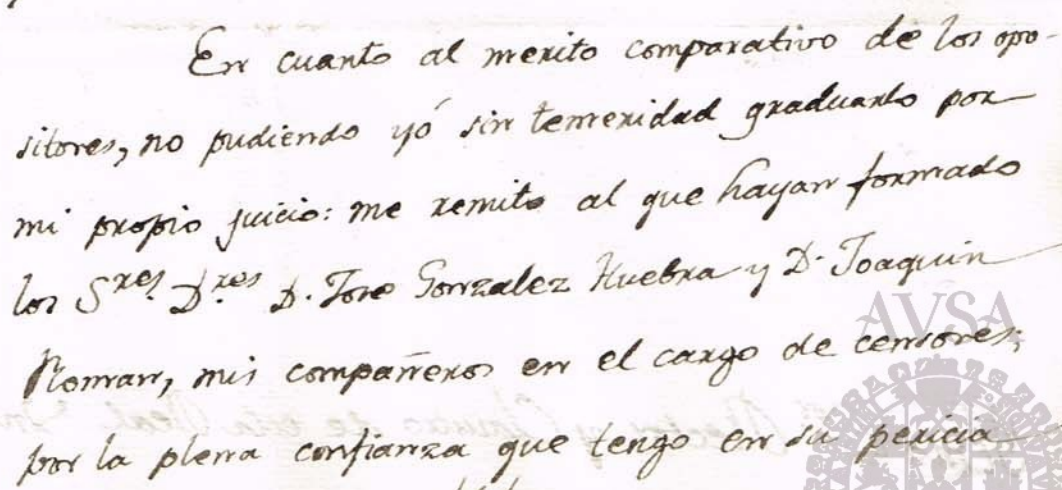 En cuanto al merito comparativo de los opo-
sitores, no pudiendo yó sin temeridad graduarlo por
mi propio juicio: me remito al que hayan formado
los S.res D.res D. Jose Gonzalez Huebra y D. Joaquin
Roman, mis compañeros en el cargo de censores;
por la plena confianza que tengo en su pericia
AVSA